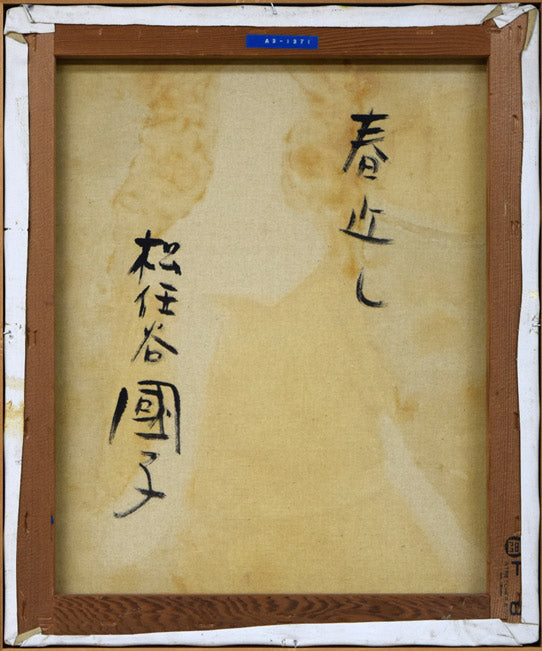 A3-1371
春近し
松任谷國子
F
8